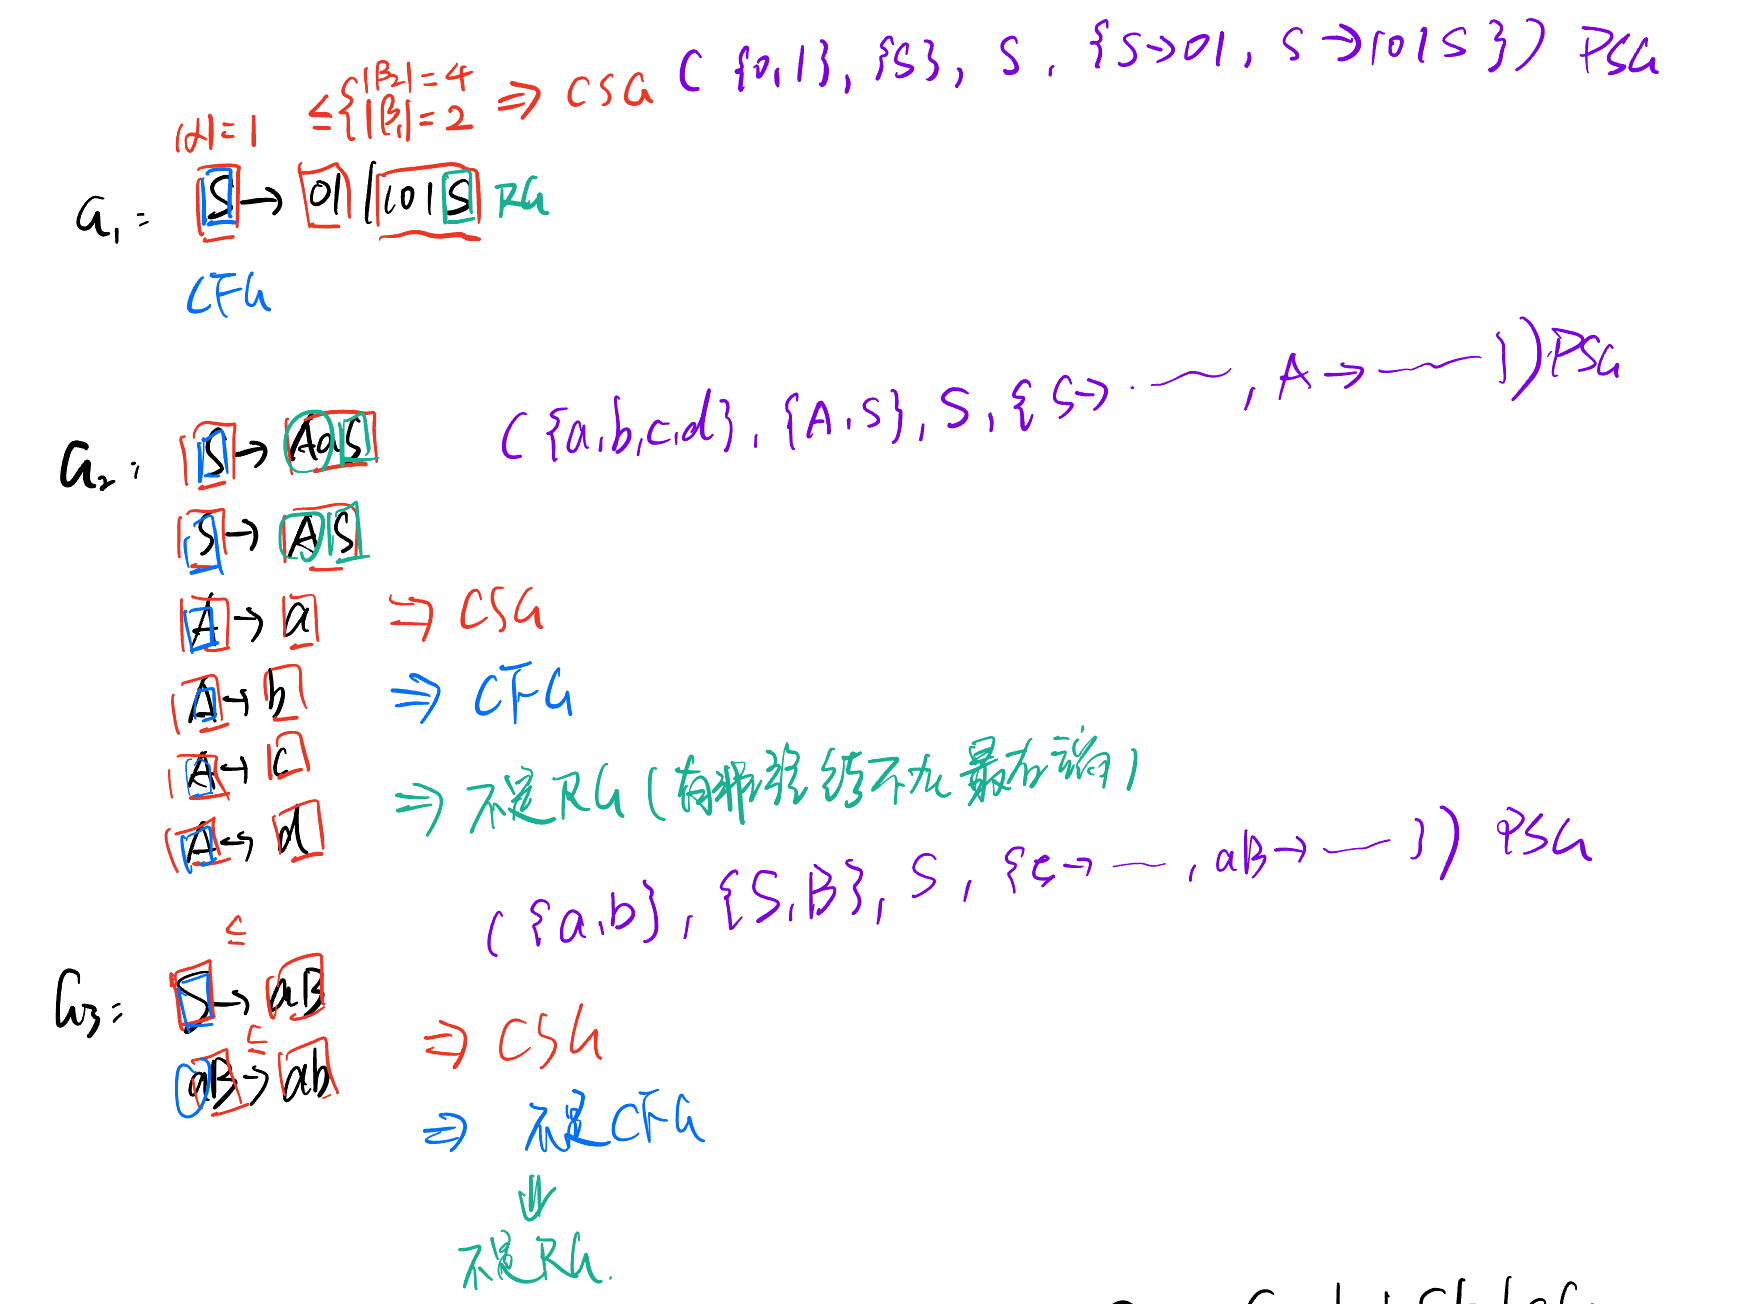 |α|=1 ≤{|β₂|=4 |β₁|=2 ⇒ CSG ({0,1}, {S}, S, {S→01, S→101S}) PSG
G₁: S→01|101S RG
CFG
({a,b,c,d}, {A,S}, S, {S→⋯, A→—}) PSG
G₂: S→AaS
S→AS
A→a ⇒ CSG
A→b ⇒ CFG
A→c
⇒ 不是RG(有非终结不在最右端)
A→d
({a,b}, {S,B}, S, {S→—, aB→—}) PSG
≤
G₃: S→aB
≤
⇒ CSG
aB→ab
⇒ 不是CFG
⇓
不是RG.